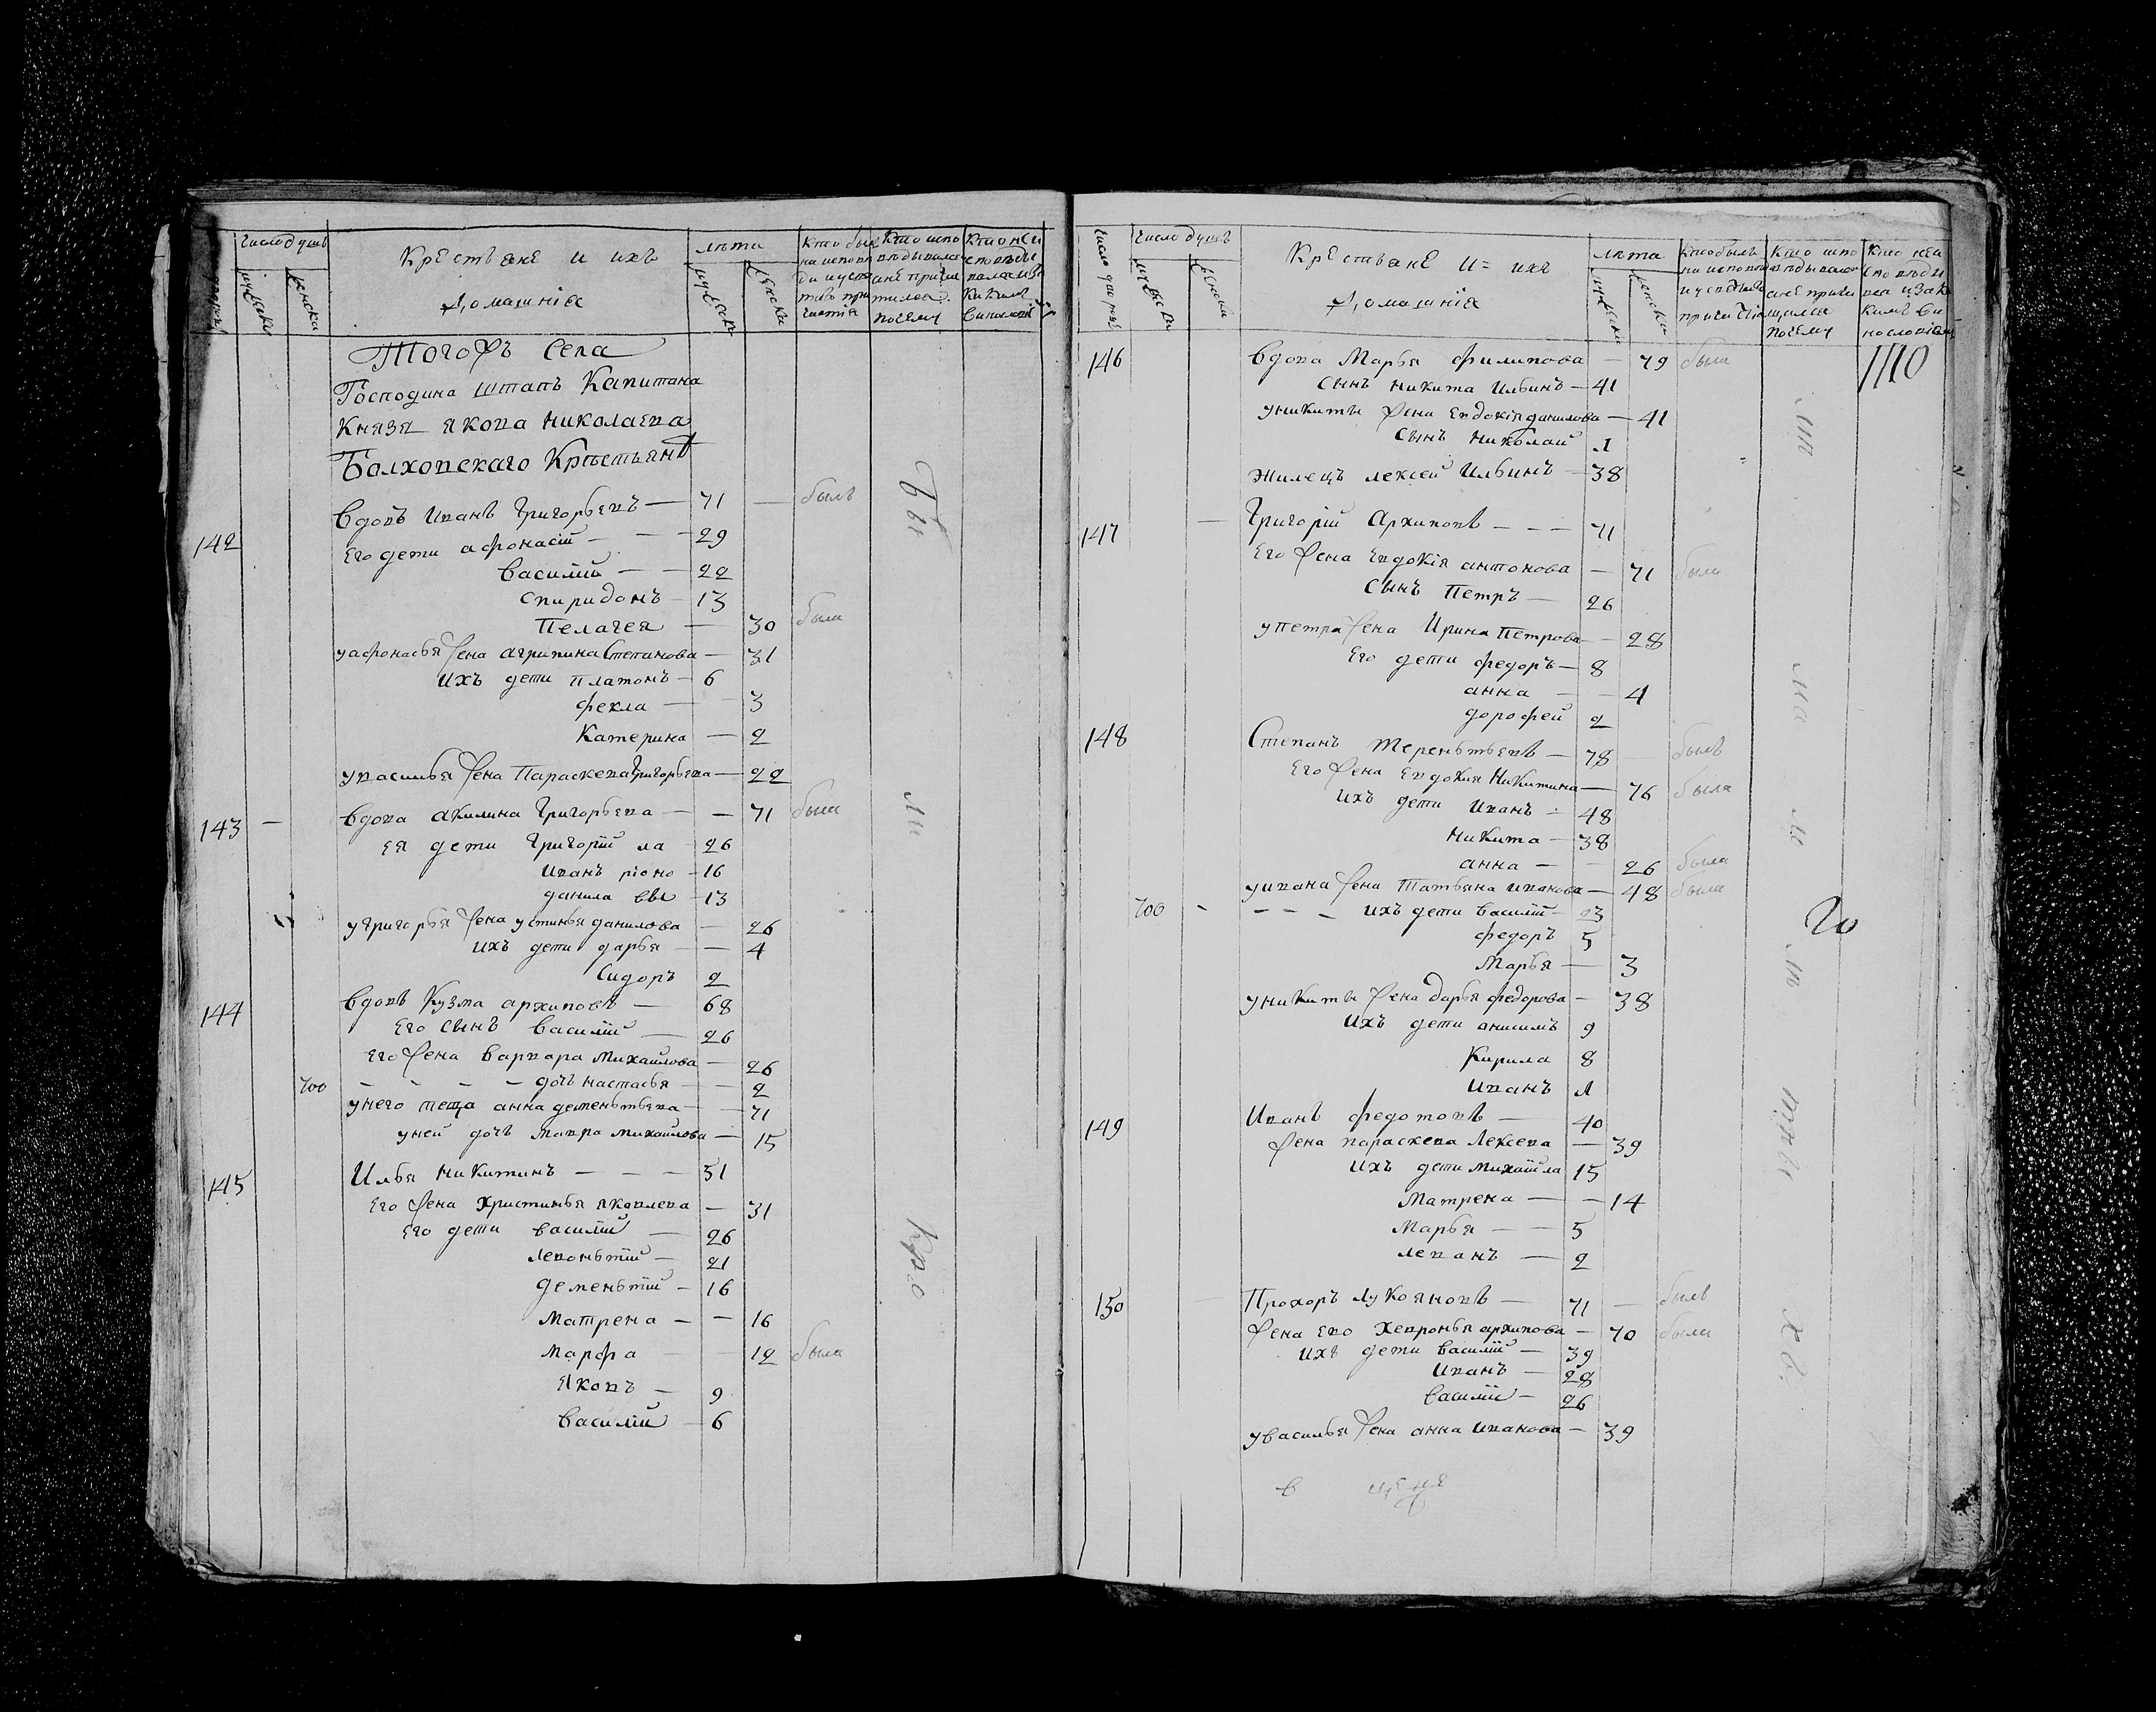 число душъ
мужеска
женска
Крестьяне и ихъ
домашнія
лѣта
мужеска
женска
Того жъ села
Господина штапъ Капитана
Князя якова николаева
Болховскаго Крестьянѣ
142 вдовъ Иванъ Григорьевъ — 71 — былъ
Его дети афонасій — 29
василій — 22
спиридонъ — 13
Пелагея — 30 была
у афонасья жена агрипина Степанова — 31
ихъ дети платонъ — 6
фекла — 3
Катерина — 2
у василья жена Параскева Григорьева — 22
143 вдова акилина Григорьева — 71 была
ея дети Григорій 26
иванъ — 16
данила 13
у Григорья жена устинья данилова — 26
ихъ дети дарья — 4
Сидоръ 2
144 вдовъ Кузма архиповъ — 68
Его сынъ василій — 26
Его жена варвара михайлова — 26
700 — дочь настасья — 2
у него теща анна дементьева — 71
у ней дочь мавра михайлова — 15
145 Илья никитинъ — 51
Его жена христинья яковлева — 31
Его дети василій — 26
леонтій — 21
дементій — 16
матрена — 16
марфа — 12 была
яковъ — 9
василій — 6
число дворовъ
число душъ
мужеска
женска
Крестьяне и = ихъ
домашнія
лѣта
мужеска
женска
1110
146 вдова Марья филипова — 79 была
сынъ никита Ильинъ — 41
у никиты жена евдокія данилова — 41
сынъ николай 1
жилецъ лексей Ильинъ — 38
147 Григорій Архиповъ — 71
Его жена Евдокія антонова — 71 была
сынъ Петръ — 26
у петра жена Ирина Петрова — 28
Его дети федоръ — 8
анна — 4
дорофей 2
148 Степанъ терентьевъ — 78 былъ
Его жена Евдокия Никитина — 76 была
ихъ дети иванъ — 48
никита — 38
анна — 26 была
у ивана жена Татьяна иванова — 48 была
700 — ихъ дети василій 23
федоръ 5
Марья — 3
20
у никиты жена дарья федорова — 38
ихъ дети онисимъ 9
Кирила 8
иванъ 1
149 Иванъ федотовъ — 40
жена параскева лексева — 39
ихъ дети михайла 15
матрена — 14
марья — 5
леванъ — 2
150 Прохоръ лукояновъ — 71 — былъ
жена его хевронья архипова — 70 была
ихъ дети василій — 39
иванъ — 28
василій — 26
у василья жена анна иванова — 39